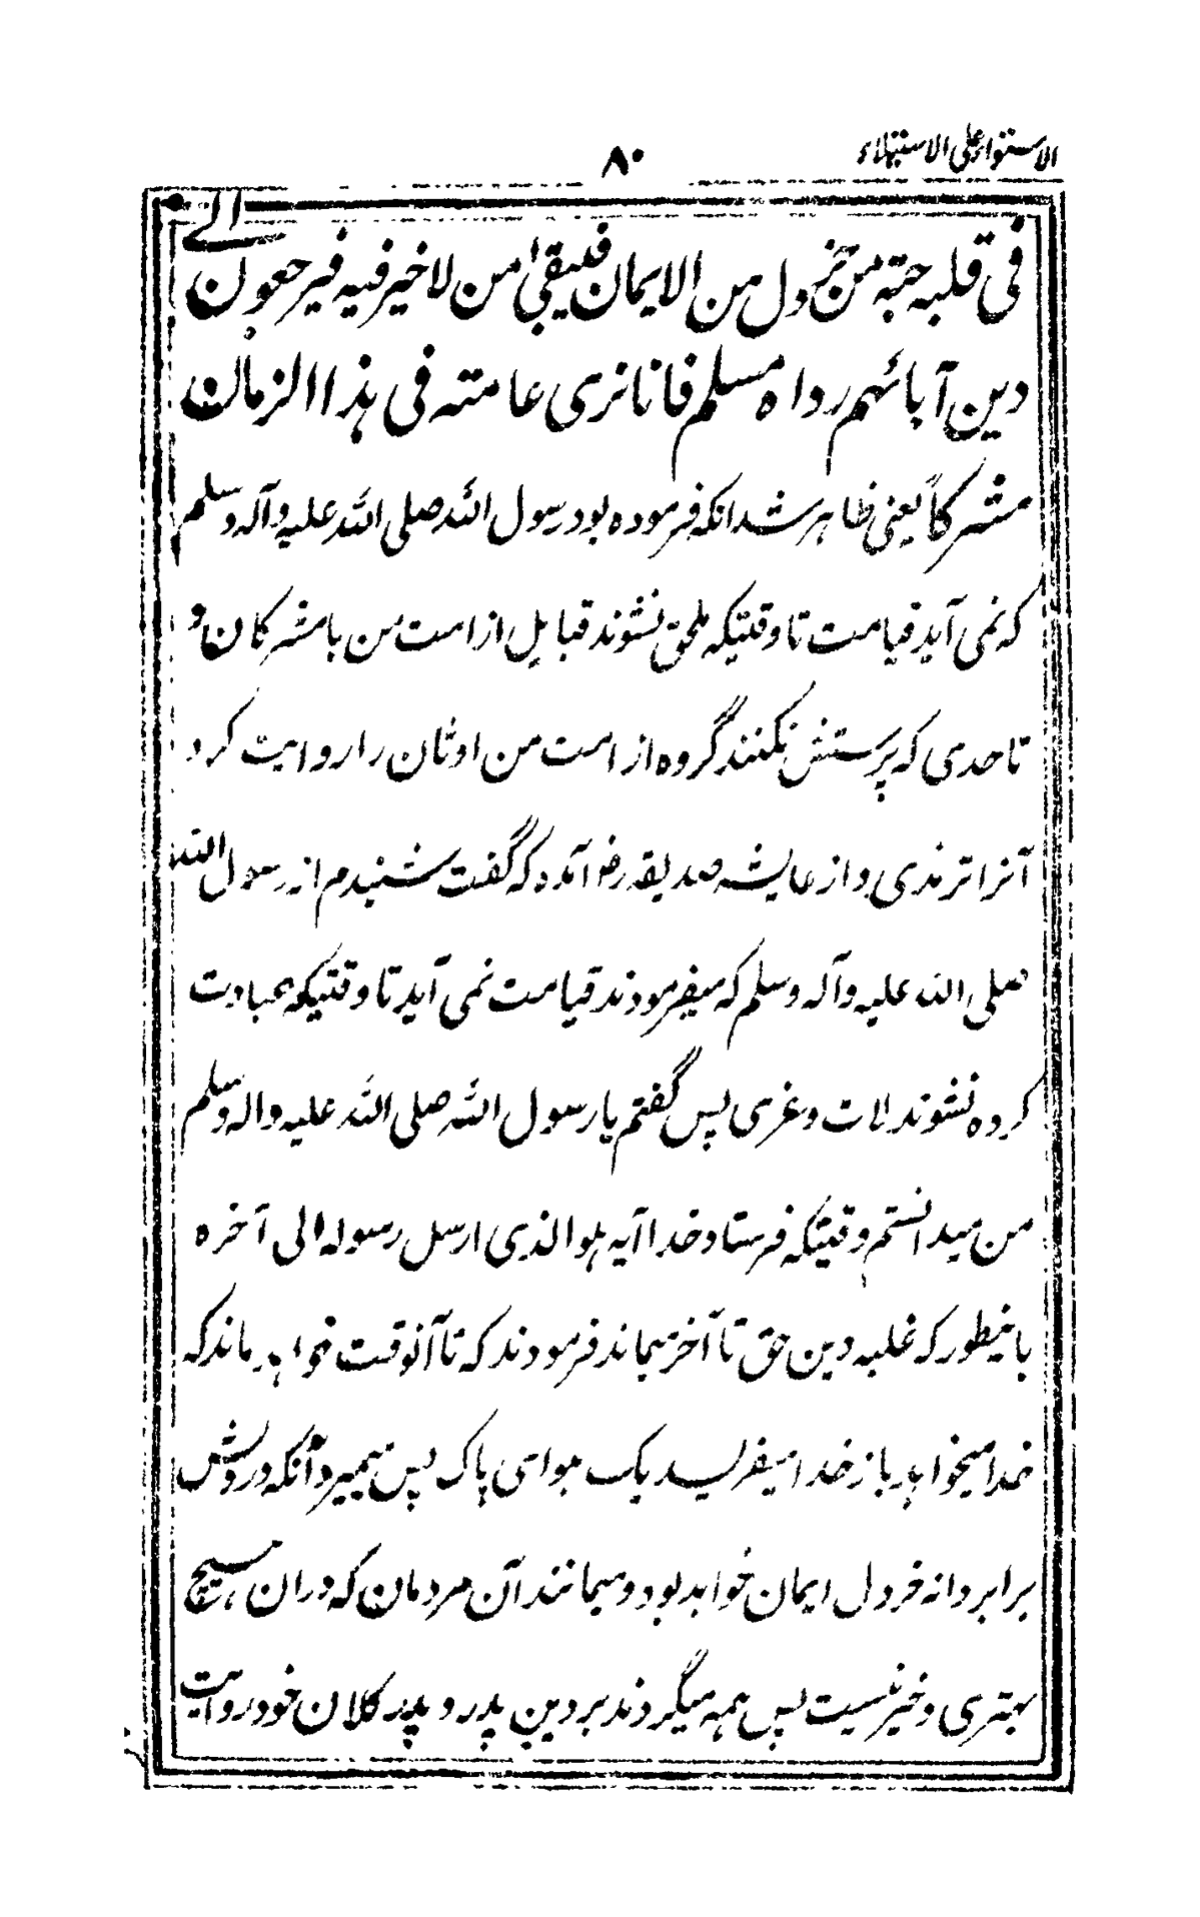 الاستواء علی الاستیلاء
۸۰
فی قلبه حبة من خردل من الایمان فیبقیٰ من لا خیر فیه فیرجعون الے
دین آبائهم رواه مسلم فانا نری عامته فی هذا الزمان
مشرکاً یعنی ظاهر شد انکه فرموده بود رسول الله صلی الله علیه وآله وسلم
که نمی آید قیامت تا وقتیکه ملحق نشوند قبایل از امت من با مشرکان و
تا حدی که پرستش نکنند گروه از امت من اوثان را روایت کرد
آنرا ترمذی و از عایشه صدیقه رض آمده که گفت شنیدم از رسول الله
صلی الله علیه وآله وسلم که میفرمودند قیامت نمی آید تا وقتیکه عبادت
کرده نشوند لات و عزی پس گفتم یا رسول الله صلی الله علیه واله وسلم
من میدانستم وقتیکه فرستاد خدا آیه هو الذی ارسل رسوله الی آخره
باینطور که غلبه دین حق تا آخر میماند فرمودند که تا آنوقت خواهد ماند که
خدا میخواهد باز خدا میفرسید یک هوای پاک پس میمیرد آنکه در دلش
برابر دانه خردل ایمان خواهد بود و میمانند آن مردمان که دران هیچ
بهتری و خیر نیست پس همه میگردند بر دین پدر و پدر کلان خود روایت